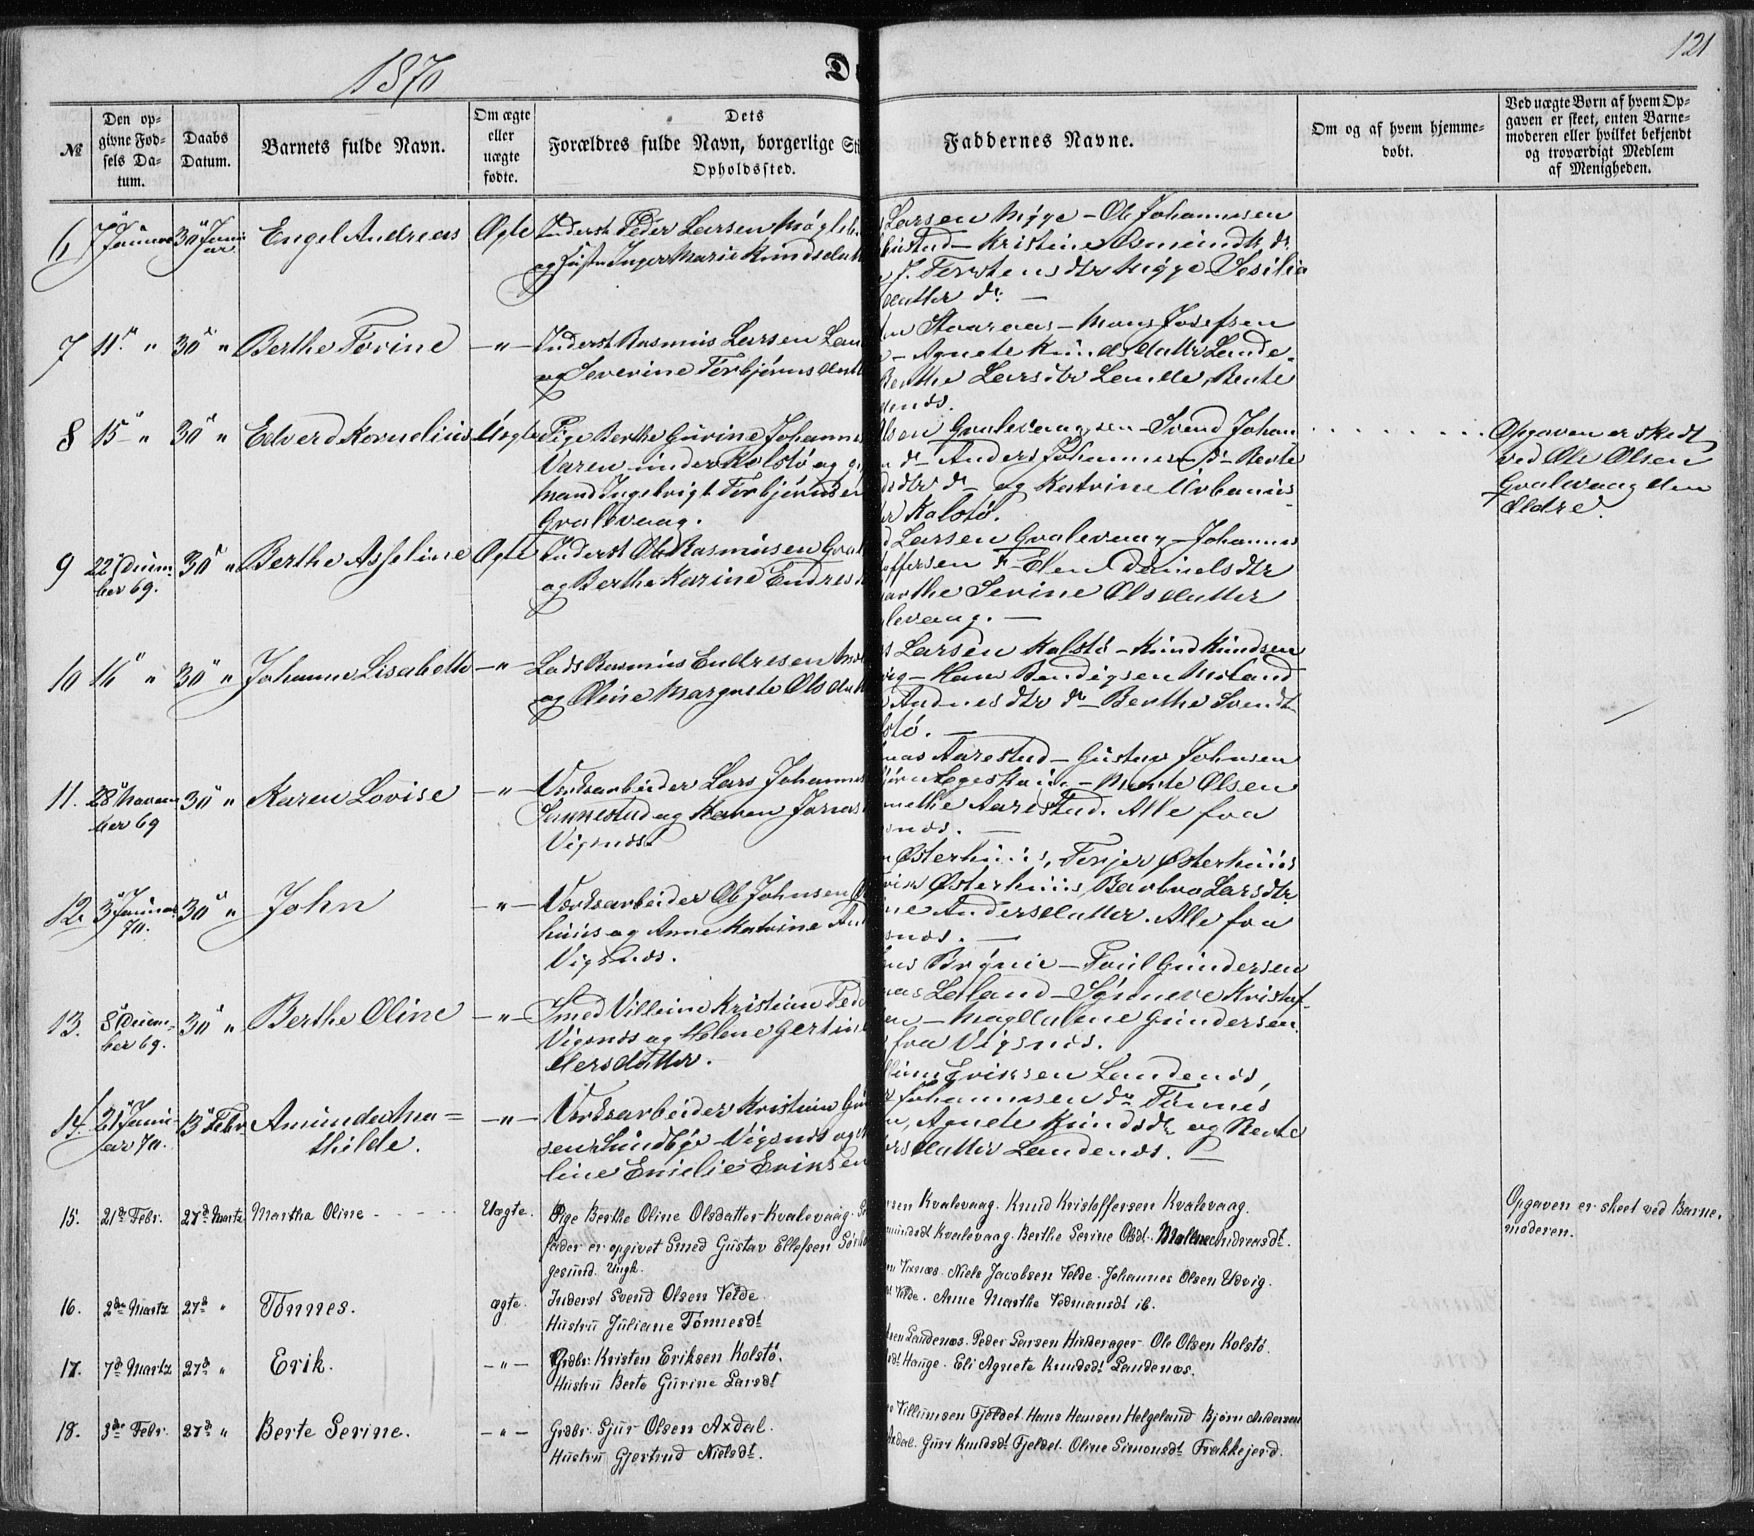 1870
121
№
Den op-
givne Fød-
sels Da-
tum.
Daabs
Datum.
Barnets fulde Navn.
Om ægte
eller
uægte
fødte.
Dets
Forældres fulde Navn, borgerlige
Opholdssted.
Faddernes Navne.
Om og af hvem hjemme-
døbt.
Ved uægte Børn af hvem Op-
gaven er skeet, enten Barne-
moderen eller hvilket bekjendt
og troværdigt Medlem
af Menigheden.
6
7 Januar
30 Januar
Engel Andreas
Ægte
Inderst Peder Larsen
og Hustru Inger Marie Knudsdat
Larsen Myge - Ole Johannesen
Kristine Osmunds dr
Torstensdtr Myge - Sesilia
datter dr -
7
11 "
30 "
Berthe Torine
- " -
Inderst Rasmus Larsen Lan
og Severine Torbjørnsdat
Staaraas - Mons Josefsen
- Agnete Knudsdatter Lande-
Berthe Larsdtr Lande, Bente
denæs.
8
15 "
30 "
Edverd Kornelius
Uægte
Pige Berthe Gurine Johannes
Varen under Kolstø og
Mand Ingebrigt Torbjørnsen
Gvalevaag.
Olsen Gvalevaag - Svend Johan
dr - Anders Johannesen dr - Bente
dtr dr - og Katrine Urbanius
Kolstø.
Opgaven er skedt
ved Ole Olsen
Gvalevaag den
Ældre.
9
22 Decem-
ber 69.
30 "
Berthe Asseline
Ægte
Inderst Ole Rasmusen Gval
og Berthe Karine Endresd
Larsen Gvalevaag - Johannes
offersen - Elen Danielsdtr
arthe Serine Olsdatter
levaag. -
10
16 "
30 "
Johanne Lisabeth
- " -
Lods Rasmus Endresen
og Oline Margrete Olsdat
Larsen Kolstø - Knud Knudsen
vig - Hans Bendigsen Meland
Andnesdtr dr - Berthe Svendt
stø. -
11.
28 Novem
ber 69
30 "
Karen Lovise
- " -
Verksarbeider Lars Johannes
Sannestad og Karen Jonas
Vigsnæs
nas Aarestad - Gustav Johnsen
Ogeskaug - Mente Olsen
Aarestad. Alle fra
snæs. -
12.
3 Januar
70.
30 "
John
- " -
Værksarbeider Ole Johnsen
huus og Anne Katrine An
Vigsnæs.
Østerhuus, Terjer Østerhuus
Østerhuus, Barbro Larsdtr
Andersdatter. Alle fra
snæs. -
13.
8 Decem-
ber 69.
30 "
Berthe Oline
- " -
Smed Villum Kristian Ped
Vigsnæs og Helene Gertine
dersdatter.
Brynie - Poul Gundersen
Leland - Synneve Kristof-
en - Magdalene Gundersen
fra Vigsnæs.
14.
21 Janu-
ar 70.
13 Febr.
Amunda Ma=
thilde.
- " -
Verksarbeider Kristian
sen Sundbye Vigsnæs og
line Emelie Eriksen
Eriksen Landenæs,
Johannesen dr Tønnes
Agnete Knudsdr og Bente
datter Landenæs.
15.
21de Febr.
27de Martz
Martha Oline
Uægte.
Pige Berthe Oline Olsdatter Kvalevaag.
fader er opgivet Smed Gustav Ellefsen
gesund. Ungk.
rsen Kvalevaag. Knud Kristoffersen Kvalevaag.
mundsdt Kvalevaag. Berthe Serine Olsdt. Malene Andreasdt.
Opgaven er skeet ved Barne-
moderen.
16.
2den Martz
27de "
Tønnes.
ægte.
Inderst Svend Olsen Velde.
Hustru Juliane Tønnesdt
Visnæs. Niels Jacobsen Velde. Johannes Olsen Udvig.
Velde. Anne Marthe Vedmansdt ib.
17.
7de Martz
27de "
Erik.
- " -
Grdbr. Kristen Eriksen Kolstø.
Hustru Berte Gurine Larsdt
sen Landenæs. Peder Larsen Hinderager. Ole Olsen Kolstø.
Hauge. Eli Agnete Knudsdt Landenæs.
18.
3die Febr.
27de "
Berte Serine.
- " -
Grdbr. Sjur Olsen Axdal.
Hustru Gjertrud Nielsdt.
Villumsen Fjeldet. Hans Hansen Helgeland Bjørn Andersen
Axdal. Guri Knudsdt Fjeldet. Oline Simonsdt Frekkejerd.